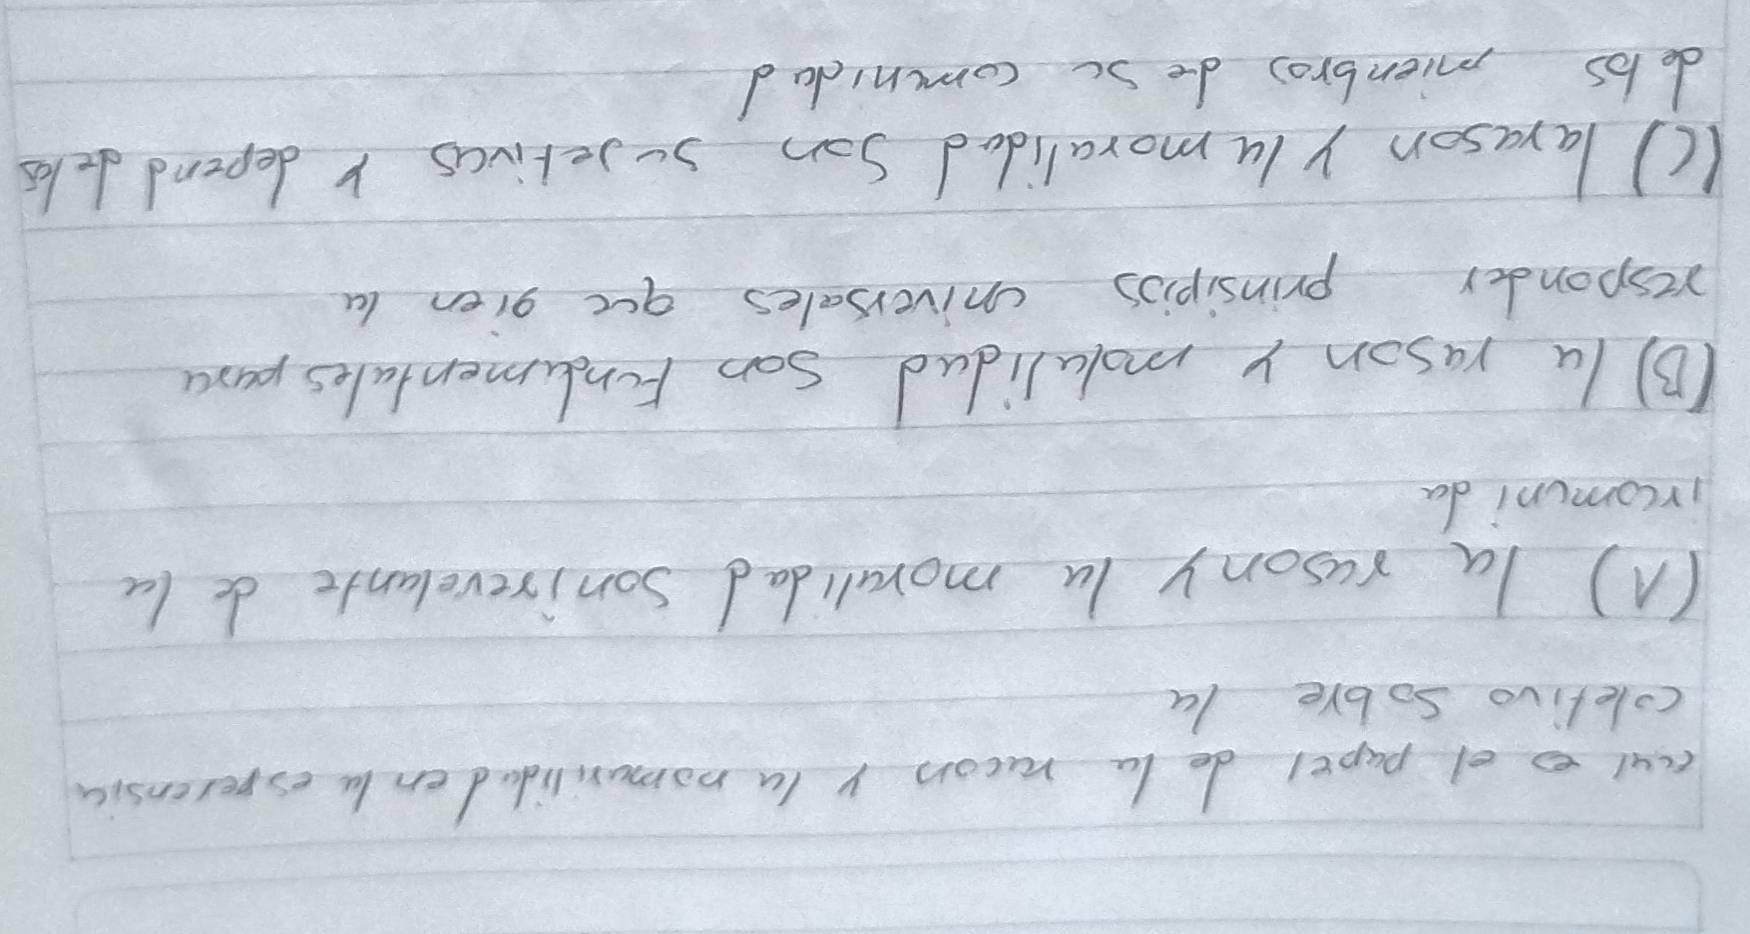 cual es el papel de la razon y la nomoralidad en la esperensia
coletivo sobre la
(A) la rason y la moralidad son irrevelante de la
ircomunida
(B) la rason y moralidad son Fundamentales para
responder prinsipios universales que gien la
(C) la rason y la moralidad son sujetivas y depend de los
de los mienbros de su comunidad